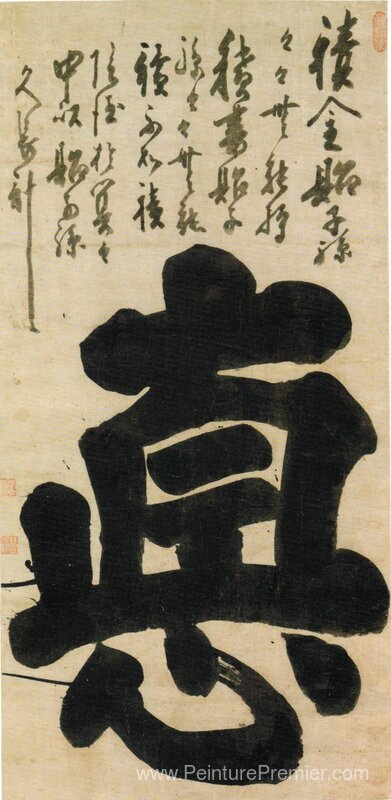 積金貽子孫
々々無能
積書貽子
孫々々無能
讀不如積
陰徳於冥々
中以貽子孫
久長計
悳
www.PeinturePremier.com